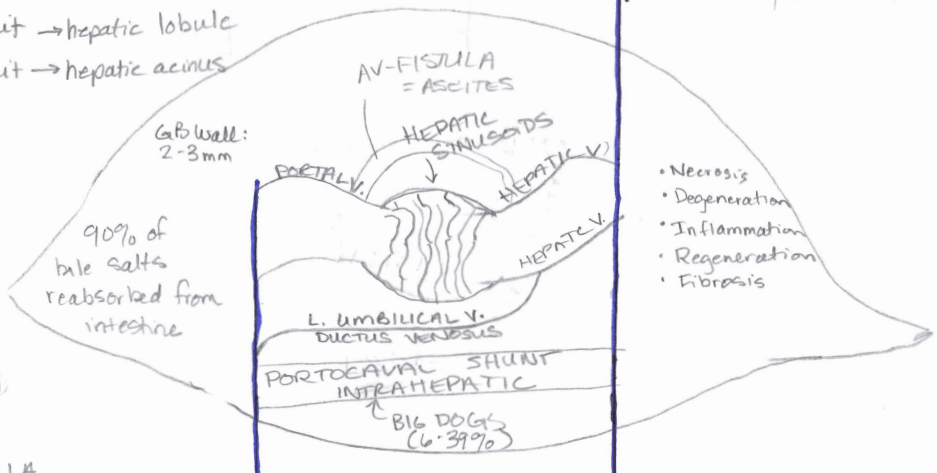 it → hepatic lobule
it → hepatic acinus
AV-FISTULA
= ASCITES
GB wall:
2-3mm
HEPATIC
SINUSOIDS
PORTAL V.
HEPATIC V)
HEPATC V.
• Necrosis
• Degeneration
• Inflammation
• Regeneration
• Fibrosis
90% of
bile salts
reabsorbed from
intestine
L. UMBILICAL V.
DUCTUS VENOSUS
PORTOCAVAL SHUNT
INTRAHEPATIC
BIG DOGS
(6-39%)